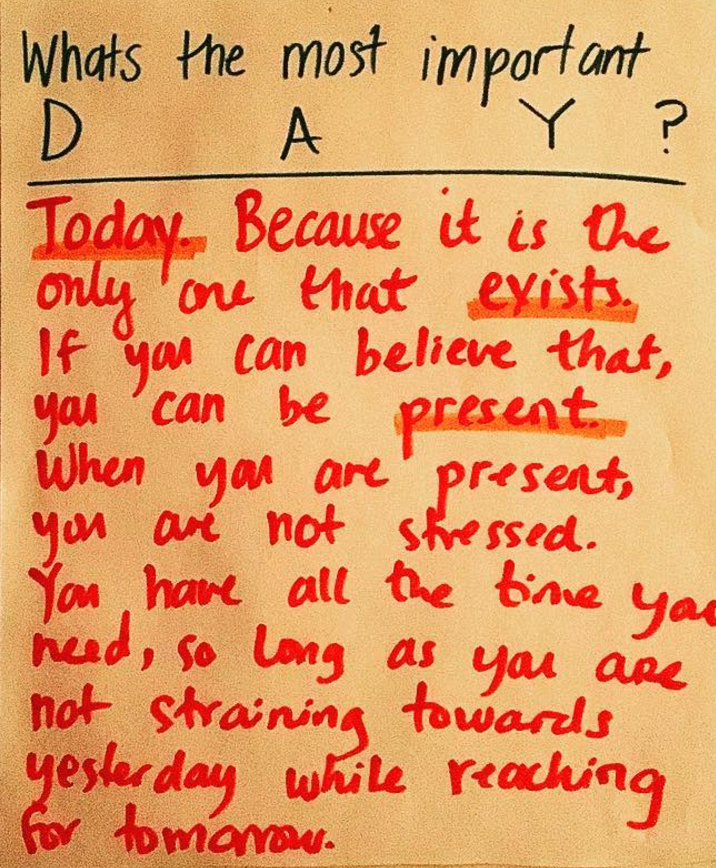 Whats the most important
D A Y ?
Today. Because it is the
only one that exists.
If you can believe that,
you can be present.
When you are present,
you are not stressed.
You have all the time you
need, so long as you are
not straining towards
yesterday while reaching
for tomorrow.